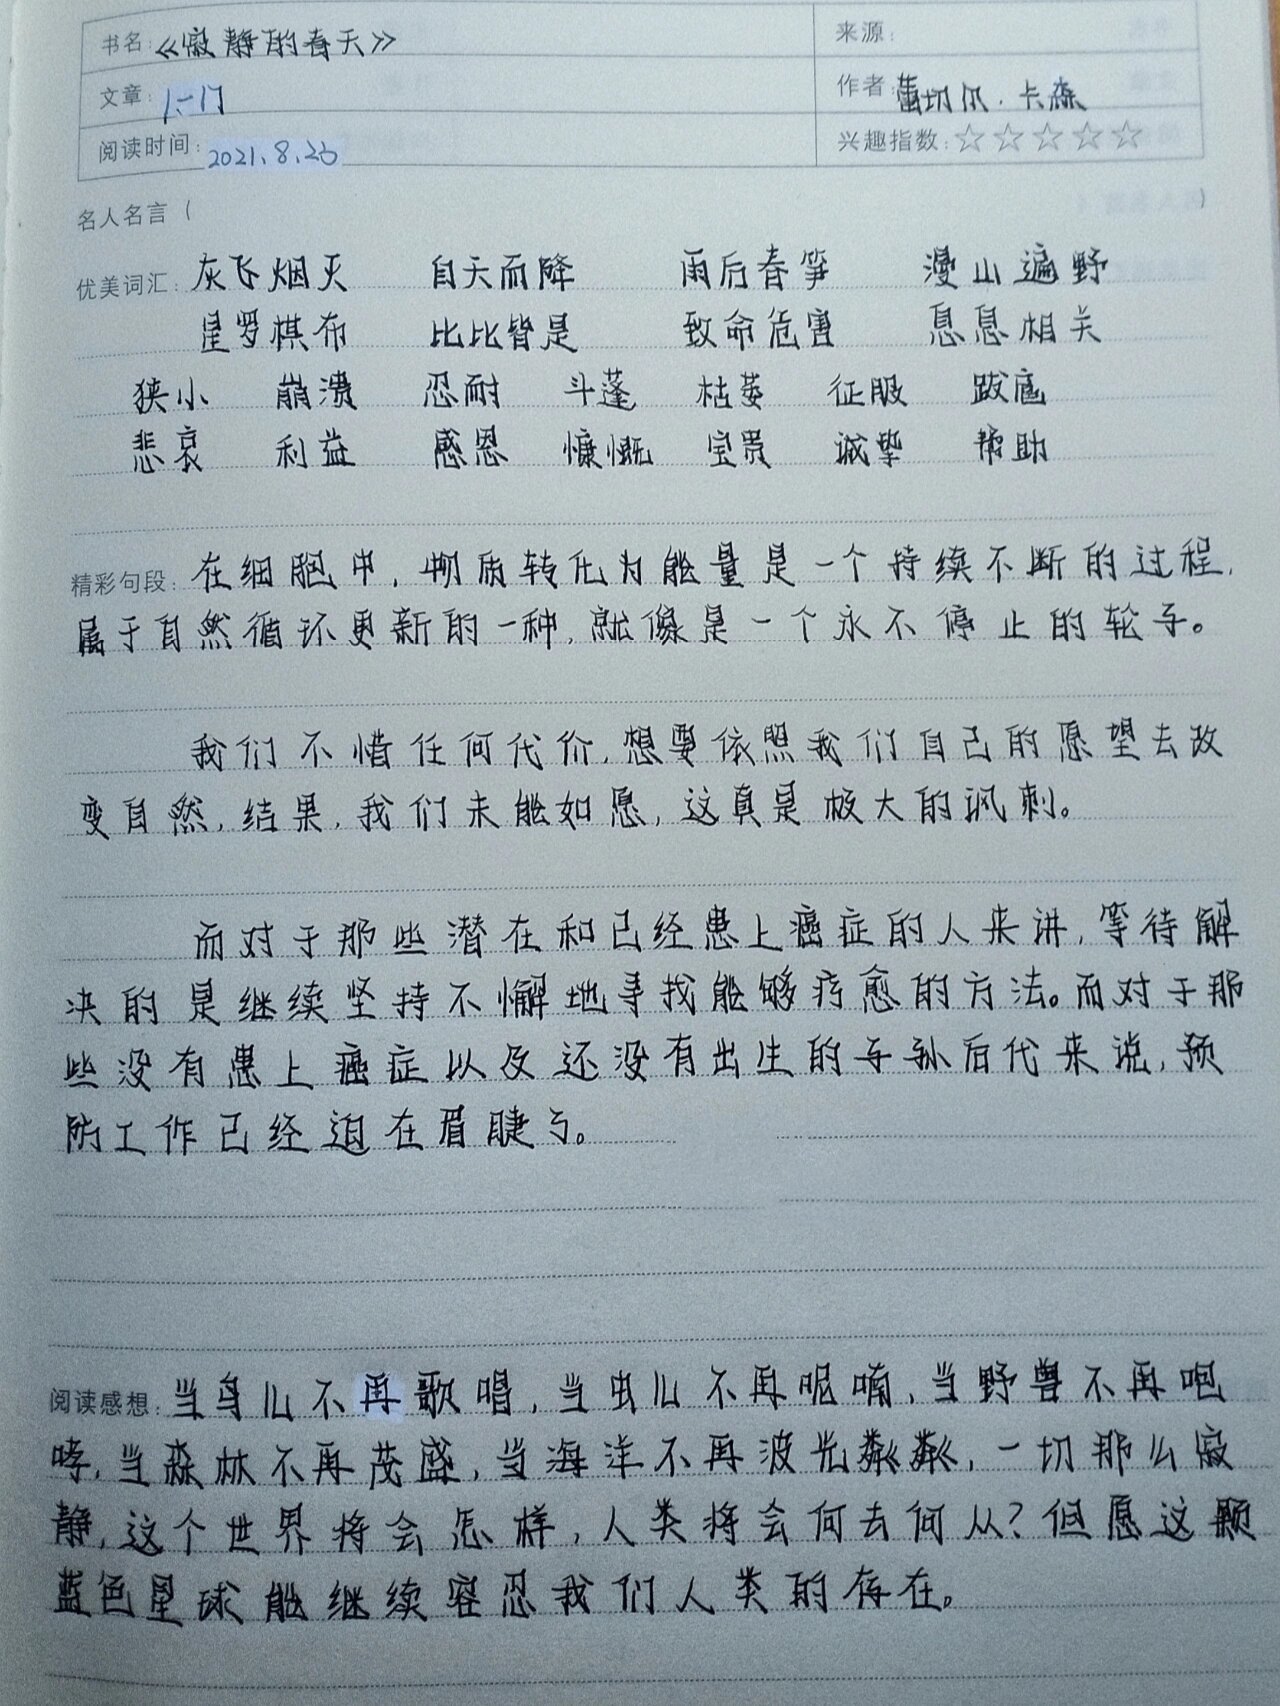 书名:《寂静的春天》 来源:
文章: 1-17 作者: 蕾切尔·卡森
阅读时间: 2021.8.26 兴趣指数:☆☆☆☆☆
名人名言 ( )
优美词汇: 灰飞烟灭 自天而降 雨后春笋 漫山遍野
星罗棋布 比比皆是 致命危害 息息相关
狭小 崩溃 忍耐 斗蓬 枯萎 征服 跋扈
悲哀 利益 感恩 慷慨 宝贵 诚挚 帮助
精彩句段: 在细胞中,物质转化为能量是一个持续不断的过程,
属于自然循环更新的一种,就像是一个永不停止的轮子。
我们不惜任何代价,想要依照我们自己的愿望去改
变自然,结果,我们未能如愿,这真是极大的讽刺。
而对于那些潜在和已经患上癌症的人来讲,等待解
决的是继续坚持不懈地寻找能够疗愈的方法。而对于那
些没有患上癌症以及还没有出生的子孙后代来说,预
防工作已经迫在眉睫了。
阅读感想: 当鸟儿不再歌唱,当虫儿不再呢喃,当野兽不再咆
哮,当森林不再茂盛,当海洋不再波光粼粼,一切那么寂
静,这个世界将会怎样,人类将会何去何从?但愿这颗
蓝色星球能继续容忍我们人类的存在。